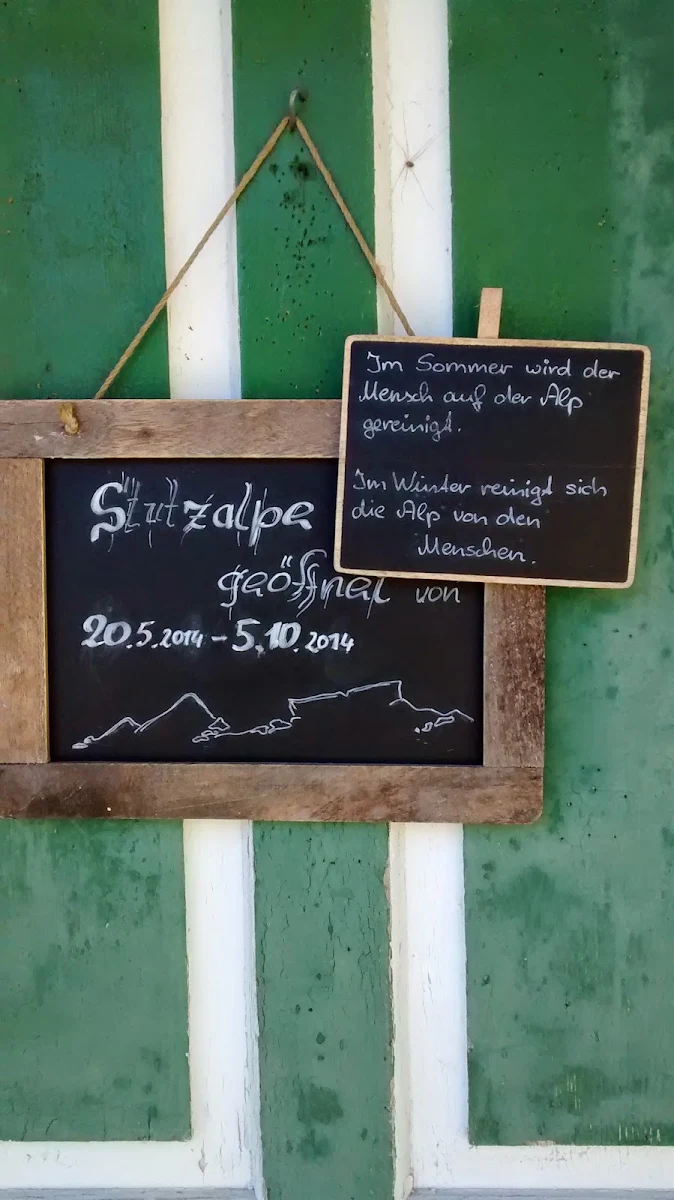 Im Sommer wird der
Mensch auf der Alp
gereinigt.
Im Winter reinigt sich
die Alp von den
Menschen.
Stutzalpe
geöffnet von
20.5.2014 - 5.10.2014